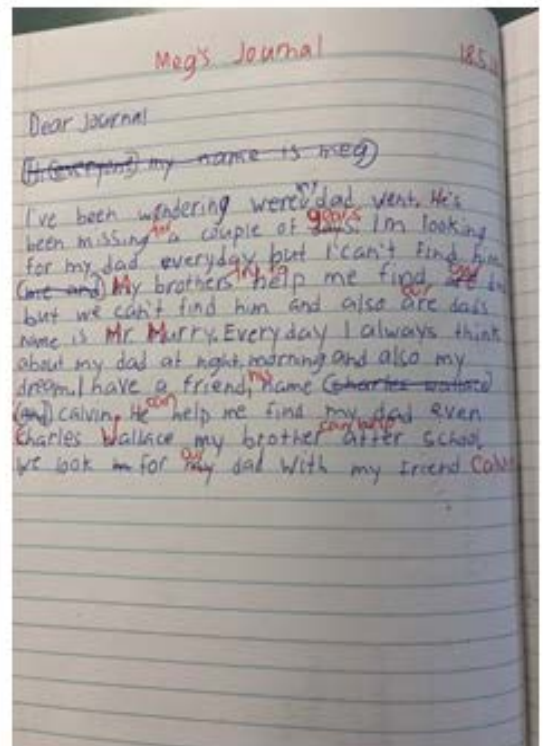 Meg's Journal 185
Dear Journal
Hi (everyone) my name is meg
I've been wondering were my dad went. He's
been missing for a couple of years. I'm looking
for my dad everyday but I can't find him
(me and) My brothers help me find our
but we can't find him and also our dad's
name is Mr. Murry. Everyday I always think
about my dad at night, morning and also my
dream. I have a friend, his name (charles wallace)
(and) calvin. He can help me find my dad even
Charles Wallace my brother can help after school
we look for our dad with my friend